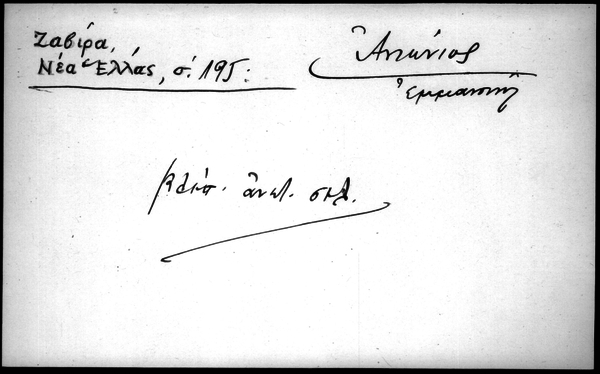 Ζαβίρα,
Νέα Ἑλλάς, σ. 195:
Ἀντώνιος
Ἐμμανουήλ
βλέπ. ἀνωτ. σελ.